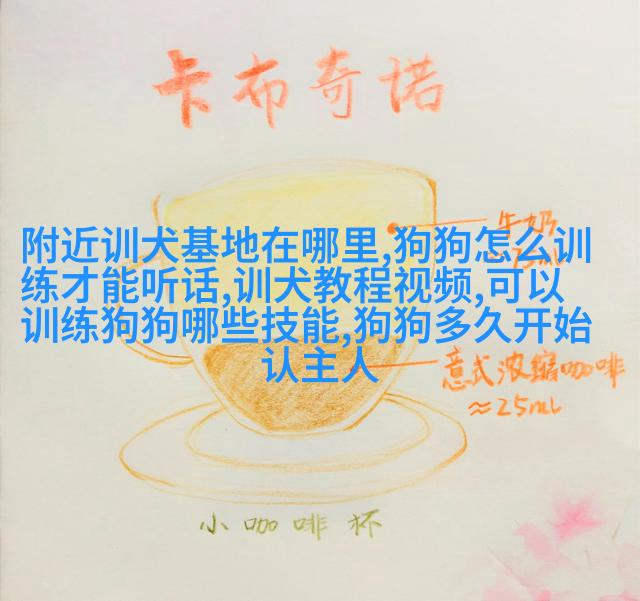 卡布奇诺
牛奶
附近训犬基地在哪里,狗狗怎么训
练才能听话,训犬教程视频,可以
训练狗狗哪些技能,狗狗多久开始
认主人
意式浓缩咖啡
≈25ml
小咖啡杯